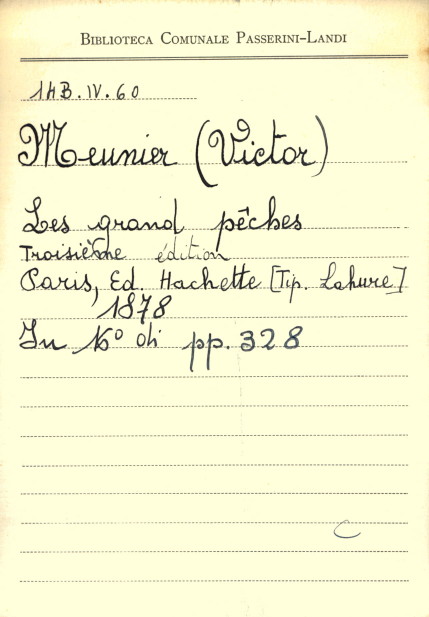 BIBLIOTECA COMUNALE PASSERINI-LANDI
1HB.IV.60
Meunier (Victor)
Les grand pêches
Troisième édition
Paris, Ed. Hachette [Tip. Lahure]
1878
In 16º di pp. 328
C